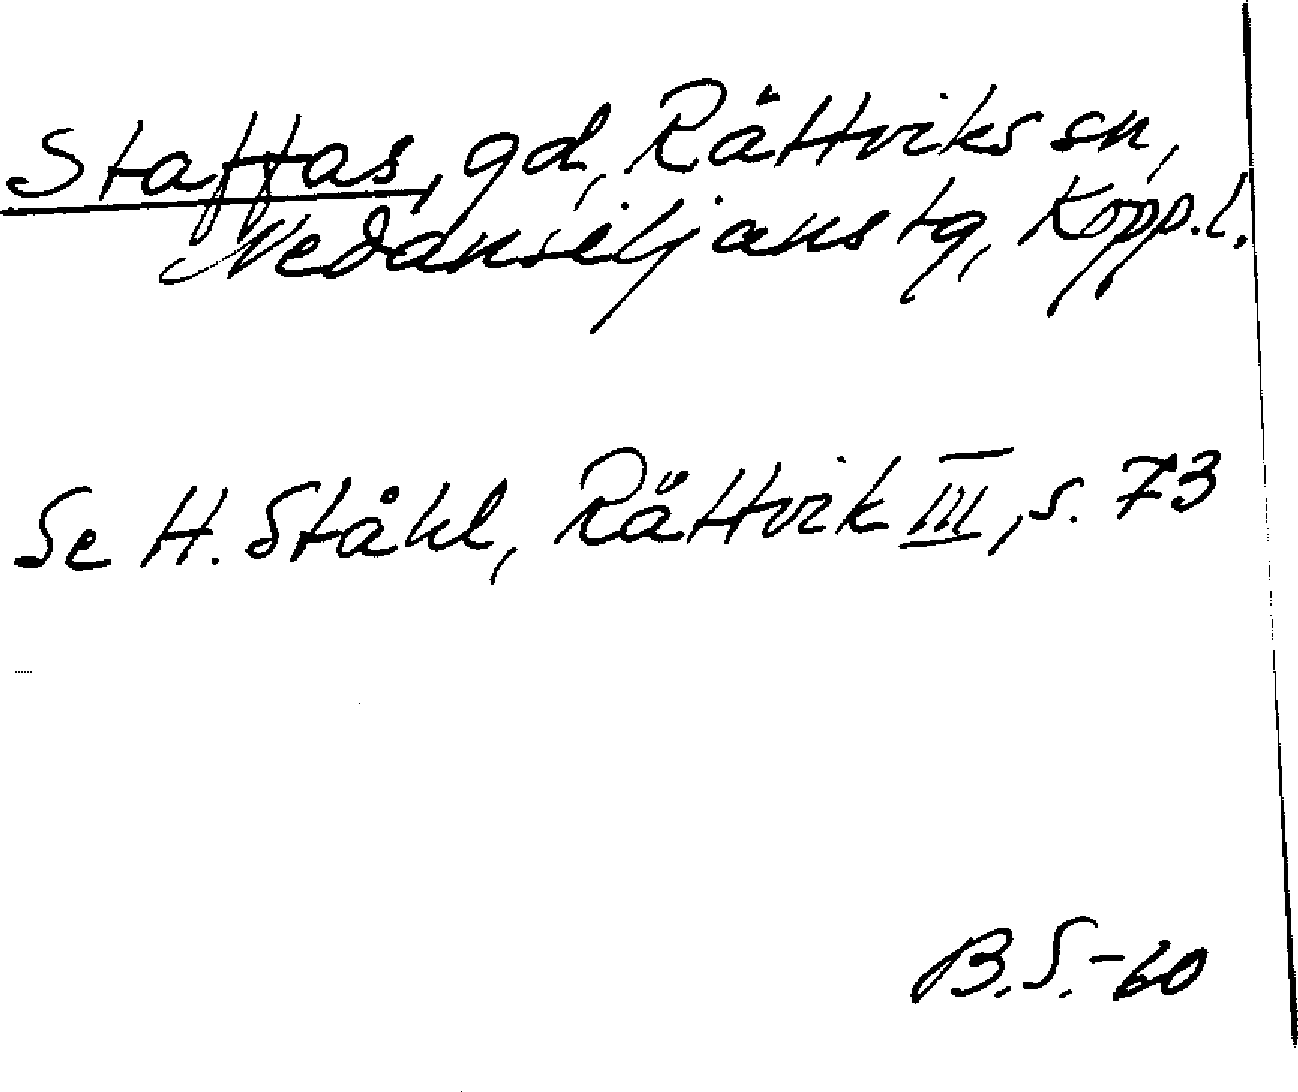 Staffas, gd, Rättviks sn,
Nedansiljans tg, Kopp. l.
Se H. Ståhl, Rättvik III, s. 73
B.S.-60